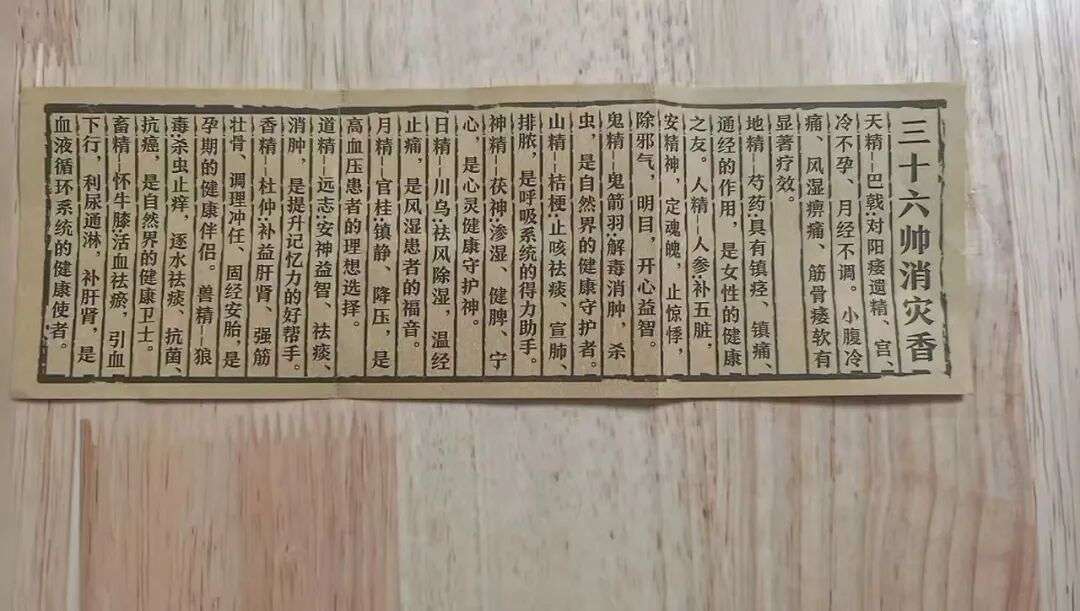 三十六帅消灾香
天精—巴戟:对阳痿遗精、宫、
冷不孕、月经不调。小腹冷
痛、风湿痹痛、筋骨痿软有
显著疗效。
地精—芍药:具有镇痉、镇痛、
通经的作用，是女性的健康
之友。人精—人参:补五脏，
安精神，定魂魄，止惊悸，
除邪气，明目，开心益智。
鬼精—鬼箭羽:解毒消肿，杀
虫，是自然界的健康守护者。
山精—桔梗:止咳祛痰、宣肺、
排脓，是呼吸系统的得力助手。
神精—茯神:渗湿、健脾、宁
心，是心灵健康守护神。
日精—川乌:祛风除湿，温经
止痛，是风湿患者的福音。
月精—官桂:镇静、降压，是
高血压患者的理想选择。
道精—远志:安神益智、祛痰、
消肿，是提升记忆力的好帮手。
香精—杜仲:补益肝肾、强筋
壮骨、调理冲任、固经安胎，是
孕期的健康伴侣。兽精—狼
毒:杀虫止痒，逐水祛痰、抗菌、
抗癌，是自然界的健康卫士。
畜精—怀牛膝:活血祛瘀，引血
下行，利尿通淋，补肝肾，是
血液循环系统的健康使者。